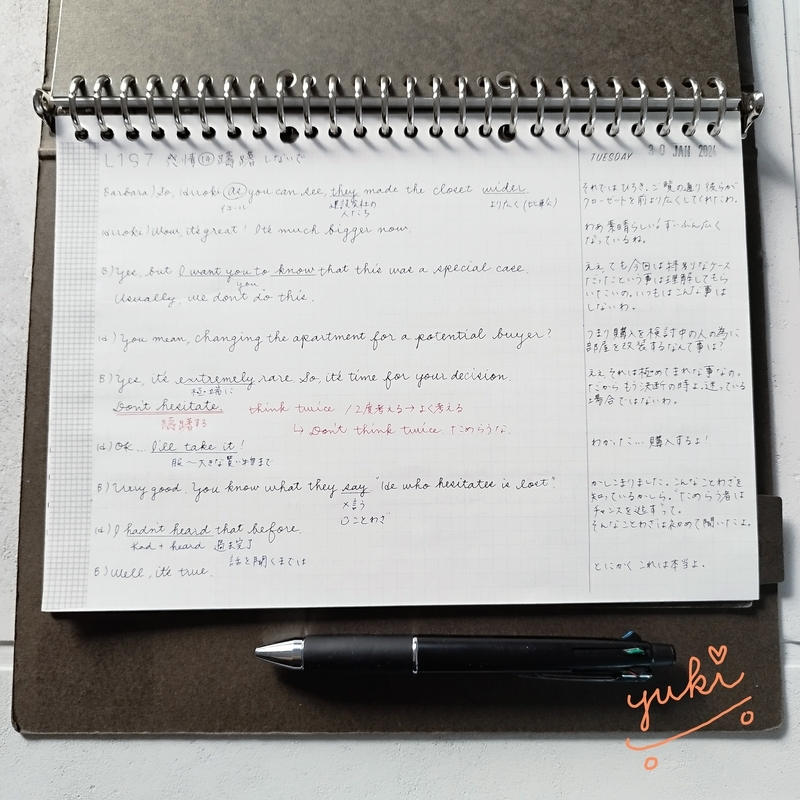 L157 感情⑭躊躇しないで
TUESDAY 30 JAN 2024
Barbara) So, Hiroki as you can see, they made the closet wider.
イコール 建設会社の人たち よりたく(比較)
それではひろき、ご覧の通り彼らが
クローゼットを前より広くしてくれたわ。
Hiroki) Wow, it's great! It's much bigger now.
わあ素晴らしい!ずいぶん広く
なっているね。
B) Yes, but I want you to know that this was a special case.
you
Usually, we don't do this.
ええ、でも今回は特別なケース
だったという事は理解してもら
いたいの。いつもはこんな事は
しないわ。
H) You mean, changing the apartment for a potential buyer?
つまり購入を検討中の人の為に
部屋を改装するなんて事は?
B) Yes, it's extremely rare. So, it's time for your decision.
極端に
Don't hesitate. think twice /2度考える→よく考える
躊躇する ↳ Don't think twice. ためらうな
ええ それは極めてまれな事なの。
だからもう決断の時よ、迷っている
場合ではないわ。
H) OK... I'll take it!
服〜大きな買い物まで
わかった… 購入するよ!
B) Very good. You know what they say "He who hesitates is lost".
×言う
○ことわざ
かしこまりました。こんなことわざを
知っているかしら。"ためらう者は
チャンスを逃す"って。
H) I hadn't heard that before.
had + heard 過去完了
話を聞くまでは
そんなことわざは初めて聞いたよ。
B) Well, it's true.
とにかく これは本当よ。
yuki